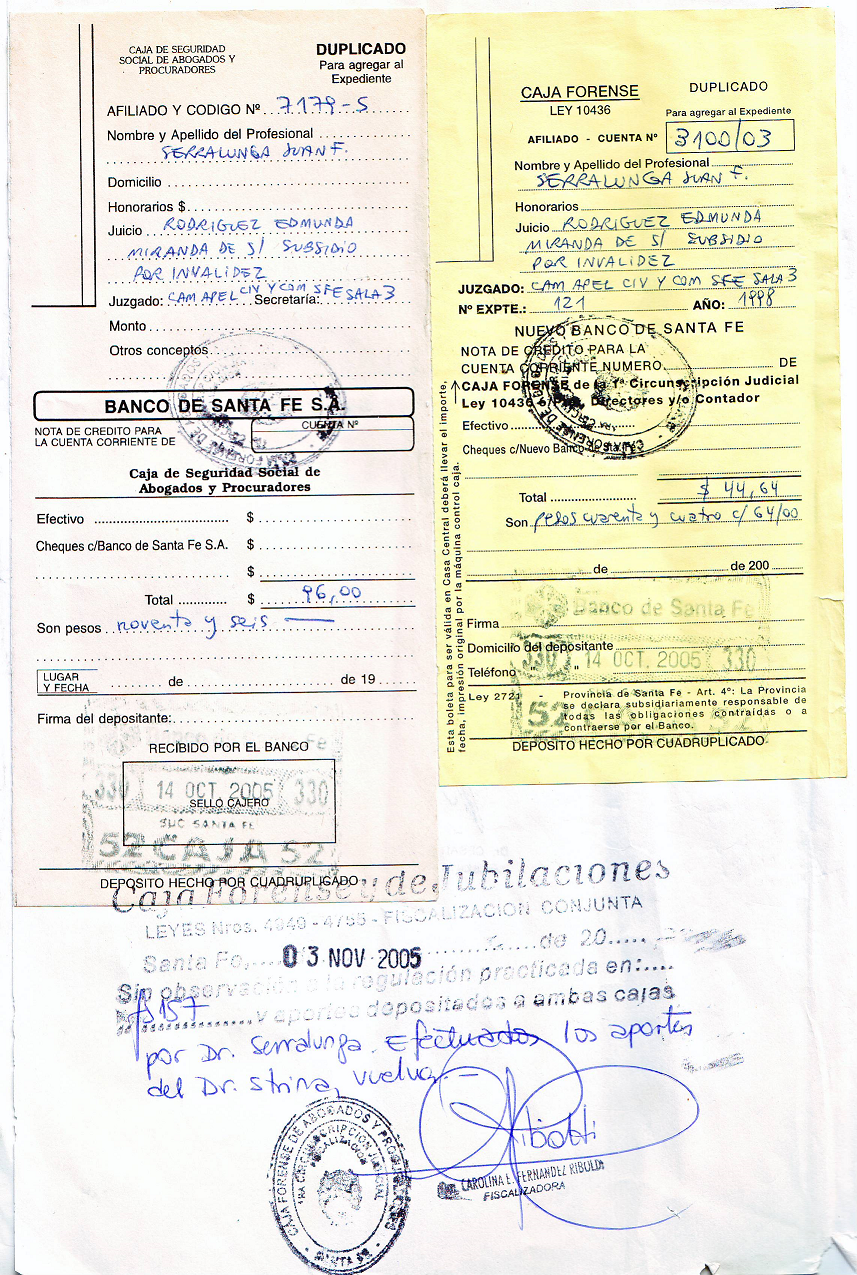 CAJA DE SEGURIDAD
SOCIAL DE ABOGADOS Y
PROCURADORES
DUPLICADO
Para agregar al
Expediente
AFILIADO Y CODIGO Nº 7179-S
Nombre y Apellido del Profesional
SERRALUNGA JUAN F.
Domicilio
Honorarios $
Juicio RODRIGUEZ EDMUNDA
MIRANDA DE S/ SUBSIDIO
POR INVALIDEZ
Juzgado: CAM APEL CIV Y COM SFE SALA 3 Secretaría:
Monto
Otros conceptos
BANCO DE SANTA FE S.A.
NOTA DE CREDITO PARA
LA CUENTA CORRIENTE DE
CUENTA Nº
Caja de Seguridad Social de
Abogados y Procuradores
Efectivo $
Cheques c/Banco de Santa Fe S.A. $
$
Total $ 96,00
Son pesos noventa y seis
LUGAR
Y FECHA
de de 19
Firma del depositante:
RECIBIDO POR EL BANCO
330 14 OCT. 2005 330
SELLO CAJERO
SUC SANTA FE
52 CAJA 52
DEPOSITO HECHO POR CUADRUPLICADO
CAJA FORENSE
LEY 10436
DUPLICADO
Para agregar al Expediente
AFILIADO - CUENTA Nº 3100/03
Nombre y Apellido del Profesional
SERRALUNGA JUAN F.
Honorarios
Juicio RODRIGUEZ EDMUNDA
MIRANDA DE S/ SUBSIDIO
POR INVALIDEZ
JUZGADO: CAM APEL CIV Y COM SFE SALA 3
Nº EXPTE.: 121 AÑO: 1998
NUEVO BANCO DE SANTA FE
NOTA DE CREDITO PARA LA
CUENTA CORRIENTE NUMERO DE
CAJA FORENSE de la 1ª Circunscripción Judicial
Ley 10436 Directores y/o Contador
Efectivo
Cheques c/Nuevo Banco de Sta. Fe
Total $ 44,64
Son pesos cuarenta y cuatro c/64/00
de de 200
Banco de Santa Fe
Firma
Domicilio del depositante
330 14 OCT. 2005 330
Teléfono " "
Ley 2721 - Provincia de Santa Fe - Art. 4º: La Provincia
se declara subsidiariamente responsable de
todas las obligaciones contraídas o a
contraerse por el Banco.
DEPOSITO HECHO POR CUADRUPLICADO
Esta boleta para ser válida en Casa Central deberá llevar el importe,
fecha, impresión original por la máquina control caja.
Caja Forense y de Jubilaciones
LEYES Nros. 4949 - 4755 - FISCALIZACION CONJUNTA
Santa Fe, 03 NOV 2005 de 20
Sin observación a la regulación practicada en:
fs 157 y aportes depositados a ambas cajas
por Dr. Serralunga. Efectuados los aportes
del Dr. Strina, vuelva.-
CAJA FORENSE DE ABOGADOS Y PROCURADORES
1RA CIRCUNSCRIPCION JUDICIAL
FISCALIZACION
SANTA FE
CAROLINA E. FERNANDEZ RIBOLDI
FISCALIZADORA